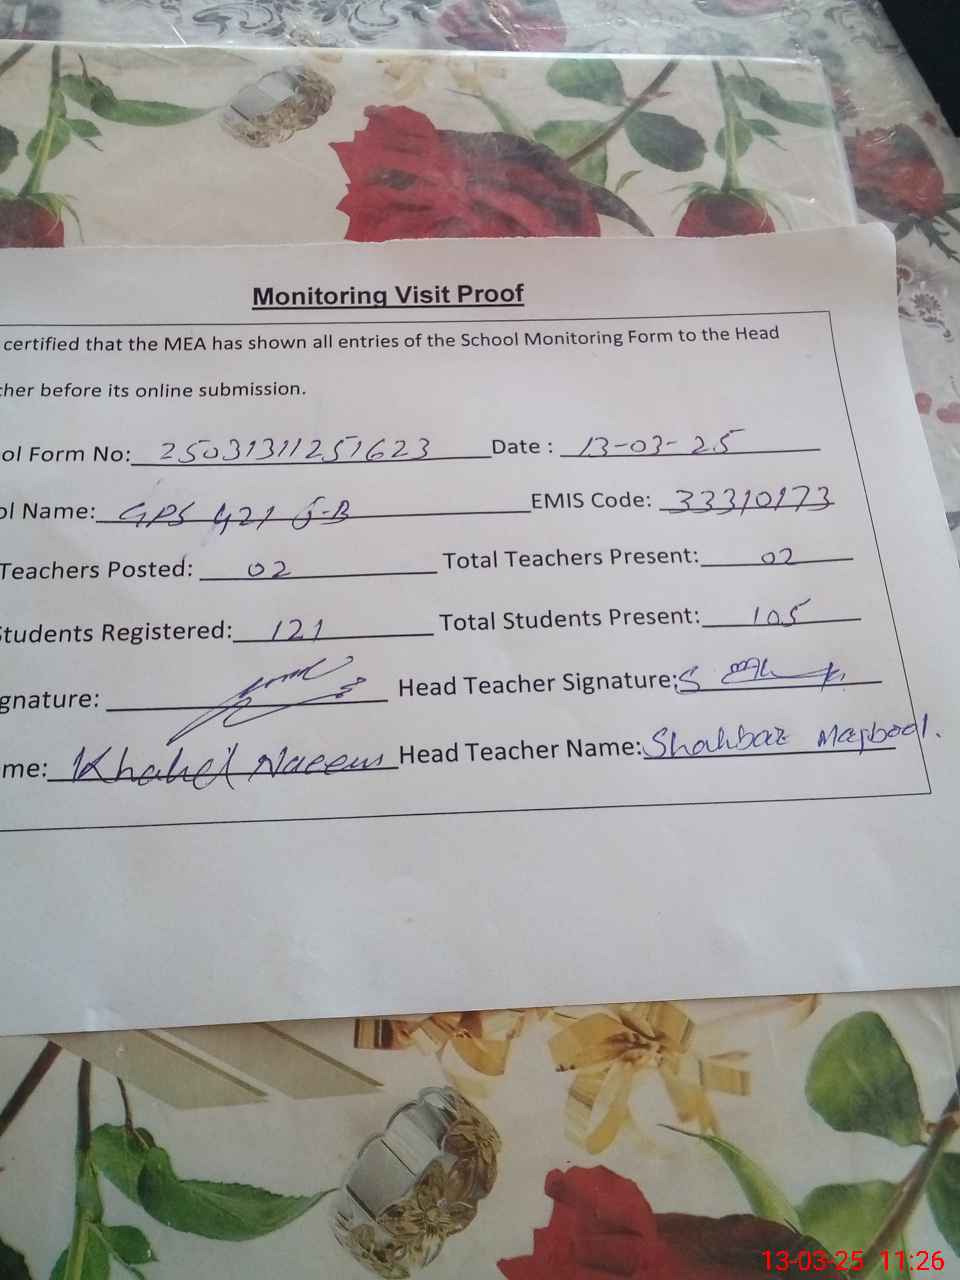 Monitoring Visit Proof
certified that the MEA has shown all entries of the School Monitoring Form to the Head
cher before its online submission.
ol Form No: 25031311251623 Date : 13-03-25
ol Name: GPS 421 G-B EMIS Code: 33310173
Teachers Posted: 02 Total Teachers Present: 02
Students Registered: 121 Total Students Present: 105
gnature: Head Teacher Signature:
me: Khalid Naeem Head Teacher Name: Shahbaz Maqbool.
13-03-25 11:26